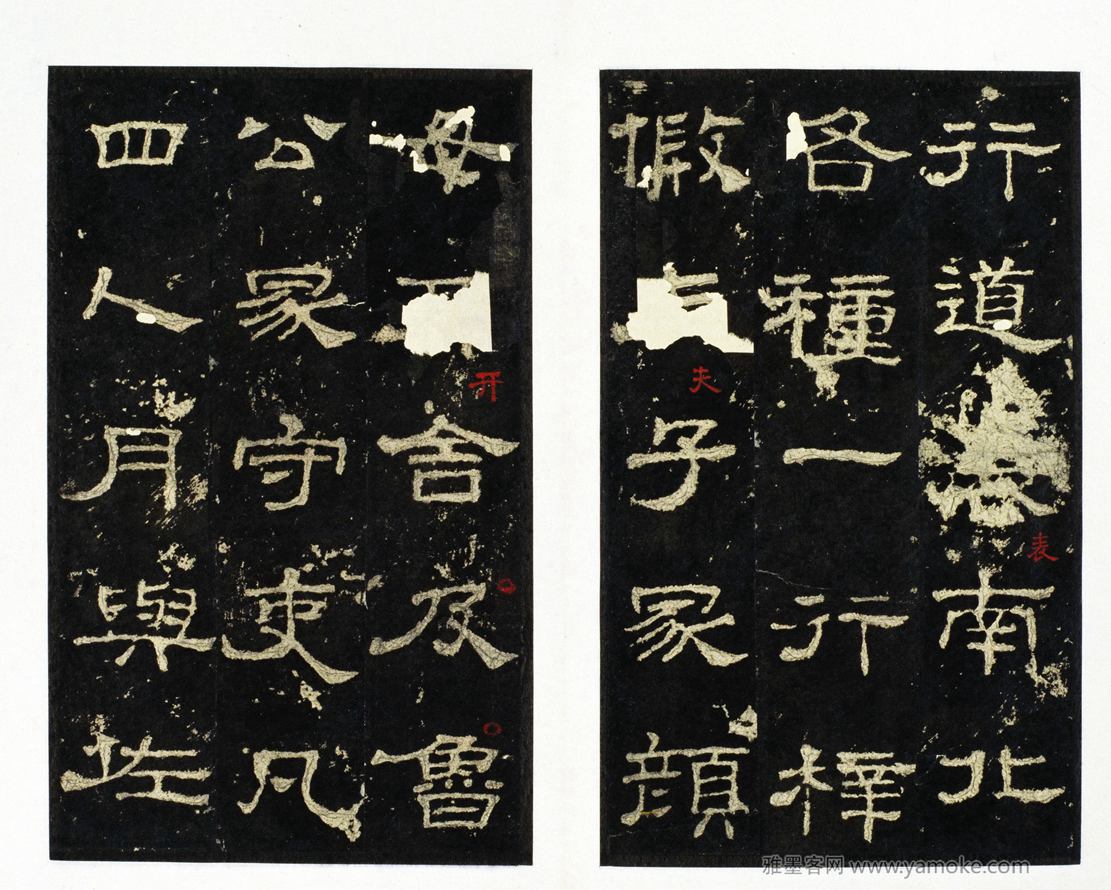 行道表南北
各種一行梓
假夫子冢顏
母开舍及魯
公冢守吏凡
四人月與佐
雅墨客网 www.yamoke.com